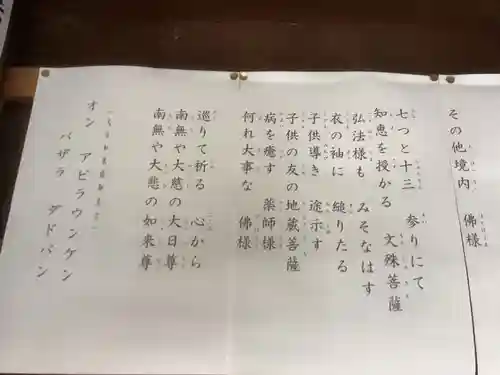 その他境内　佛様
七つと十三　参りにて
知恵を授かる　文殊菩薩
弘法様も　みそなはす
衣の袖に　縋りたる
子供導き　途示す
子供の友の　地蔵菩薩
病を癒す　薬師様
何れ大事な　佛様
巡りて祈る　心から
南無や大慈の　大日尊
南無や大悲の　如来尊
オン　アビラウンケン
バザラ　ダドバン